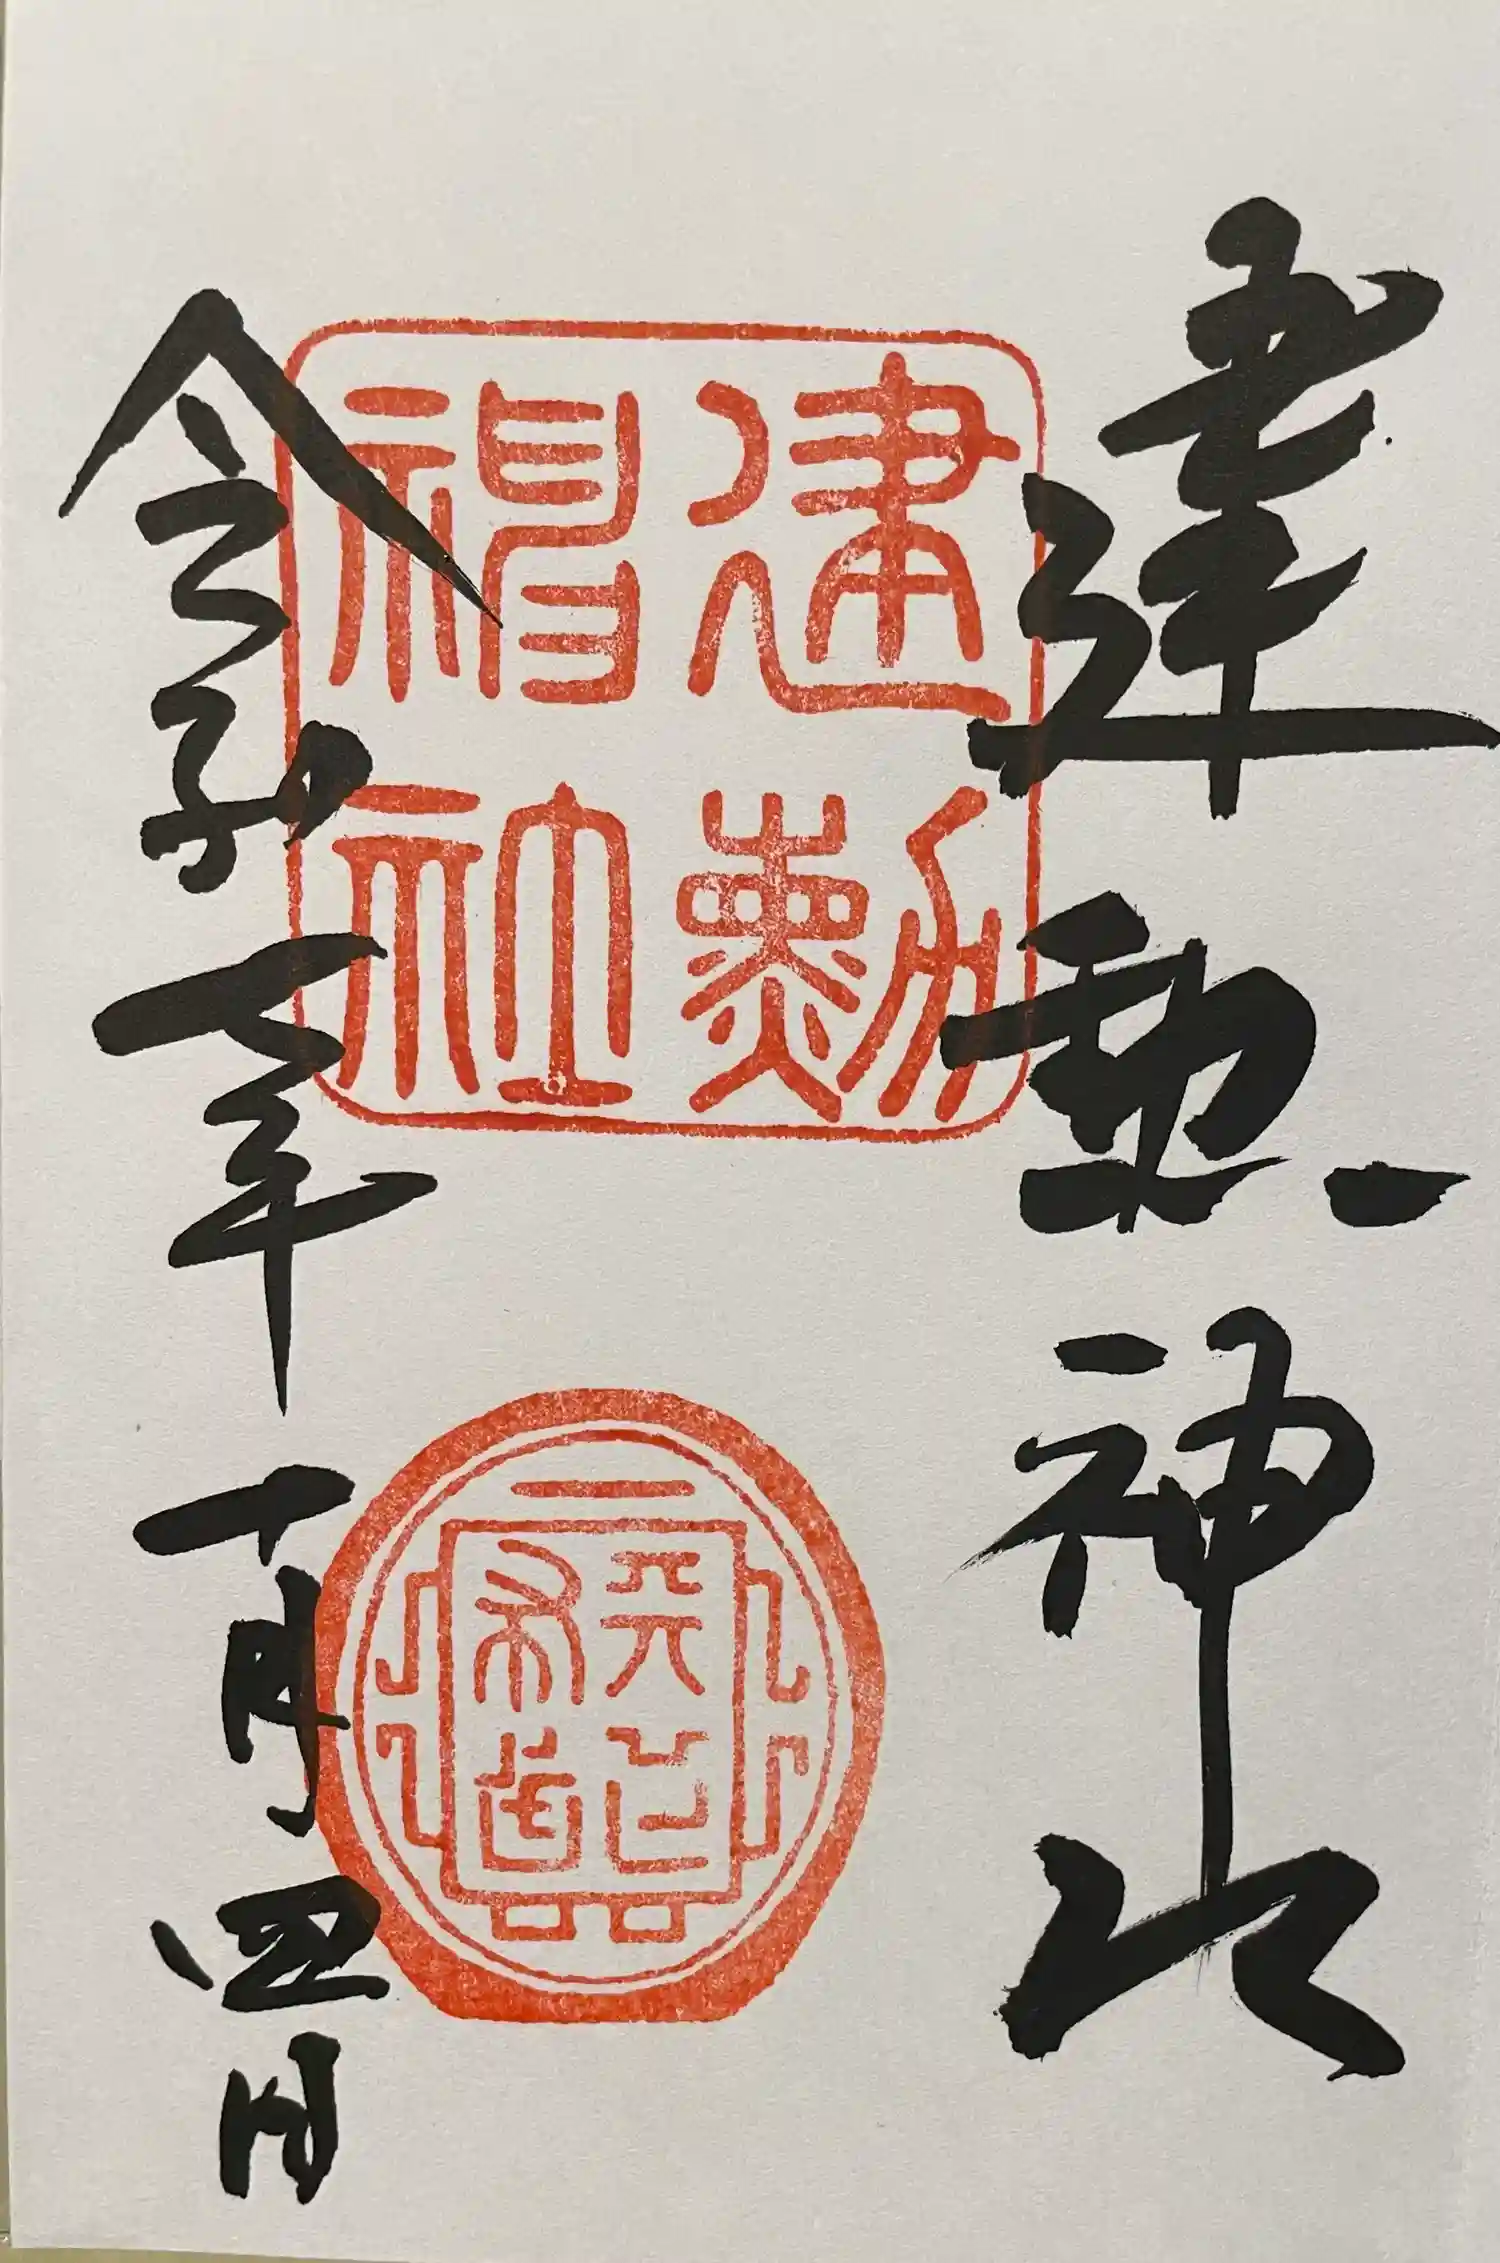 建勲神社
建勲
神社
天下
布武
令和年十月四日